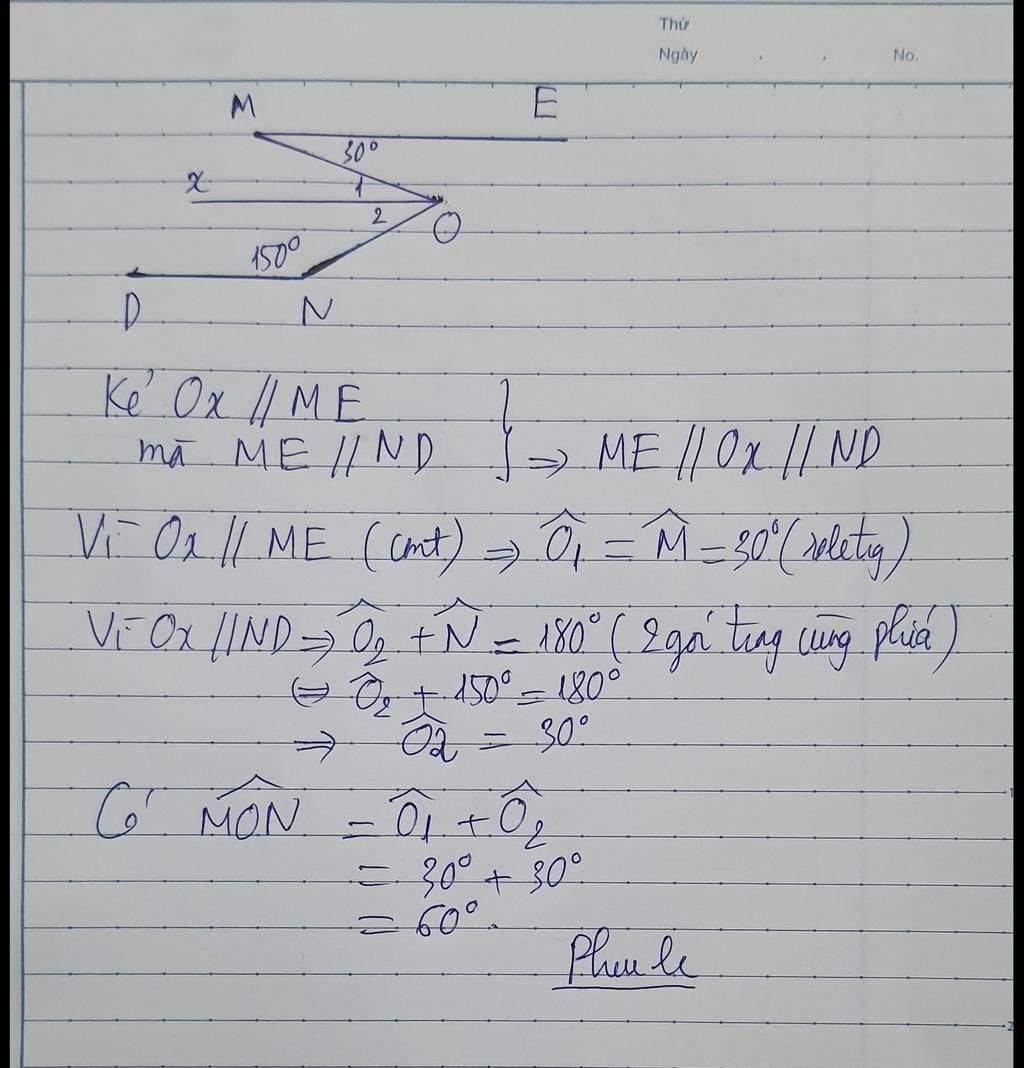 Thứ
Ngày . . No.
M E
30°
x 1
2
O
150°
D N
Kẻ Ox // ME
mà ME // ND } => ME // Ox // ND
Vì Ox // ME (cmt) => Ô₁ = M̂ = 30° (soletrg)
Vì Ox // ND => Ô₂ + N̂ = 180° (2 góc trong cùng phía)
<=> Ô₂ + 150° = 180°
=> Ô2 = 30°
Có \widehat{MON} = Ô₁ + Ô₂
= 30° + 30°
= 60°.